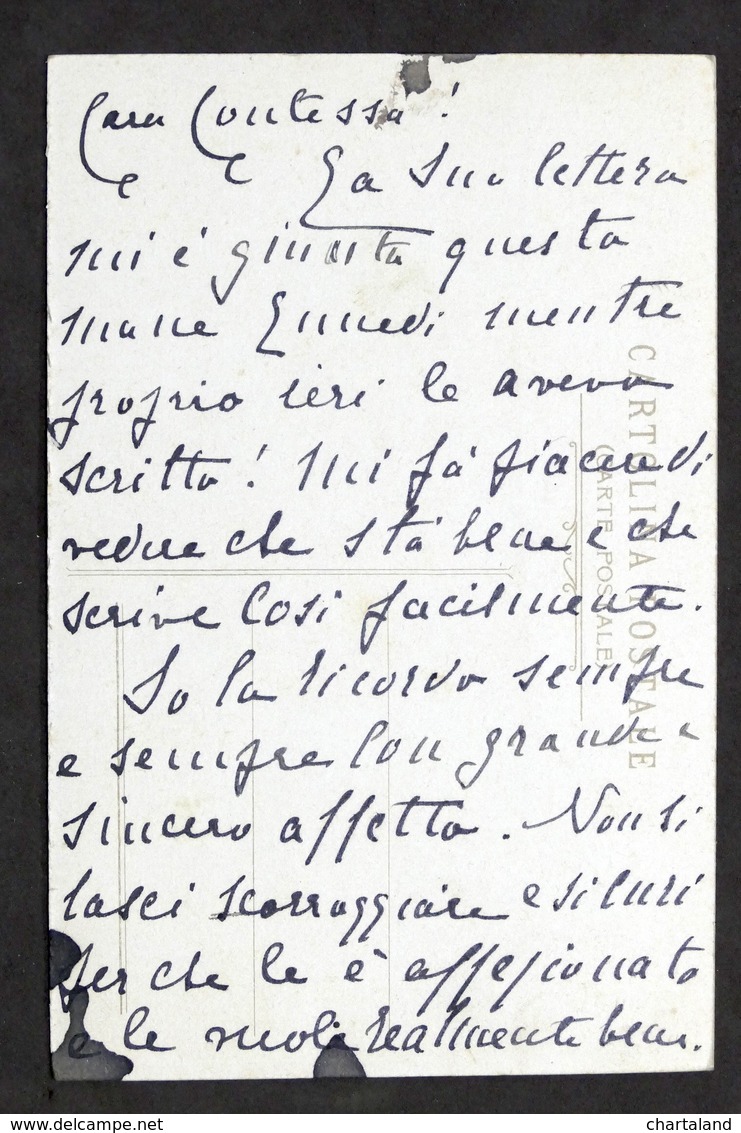 Cara Contessa!
La Sua lettera
mi è giunta questa
mane Lunedi mentre
proprio ieri le aveva
scritto! Mi fà piacere di
vedere che stà bene e che
scrive Così facilmente.
Io la ricordo sempre
e sempre Con grande e
sincero affetto. Non si
lasci scorraggiare e si curi
per che le è affezionato
e le vuole realmente bene.
CARTOLINA POSTALE
(CARTE POSTALE)
www.delcampe.net
chartaland